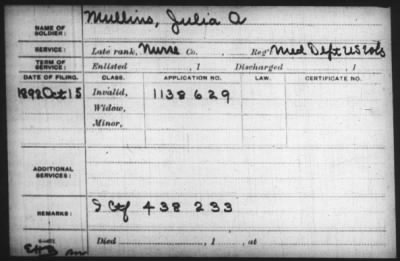 NAME OF SOLDIER: Mullins, Julia A
SERVICE: Late rank, Nurse Co. Reg't Med Dept US Vols
TERM OF SERVICE: Enlisted , 1 Discharged , 1
DATE OF FILING. CLASS. APPLICATION NO. LAW. CERTIFICATE NO.
1892 Oct 15 Invalid, 1138629
Widow,
Minor,
ADDITIONAL SERVICES:
REMARKS: S Ctf 438 233
Died , 1 , at